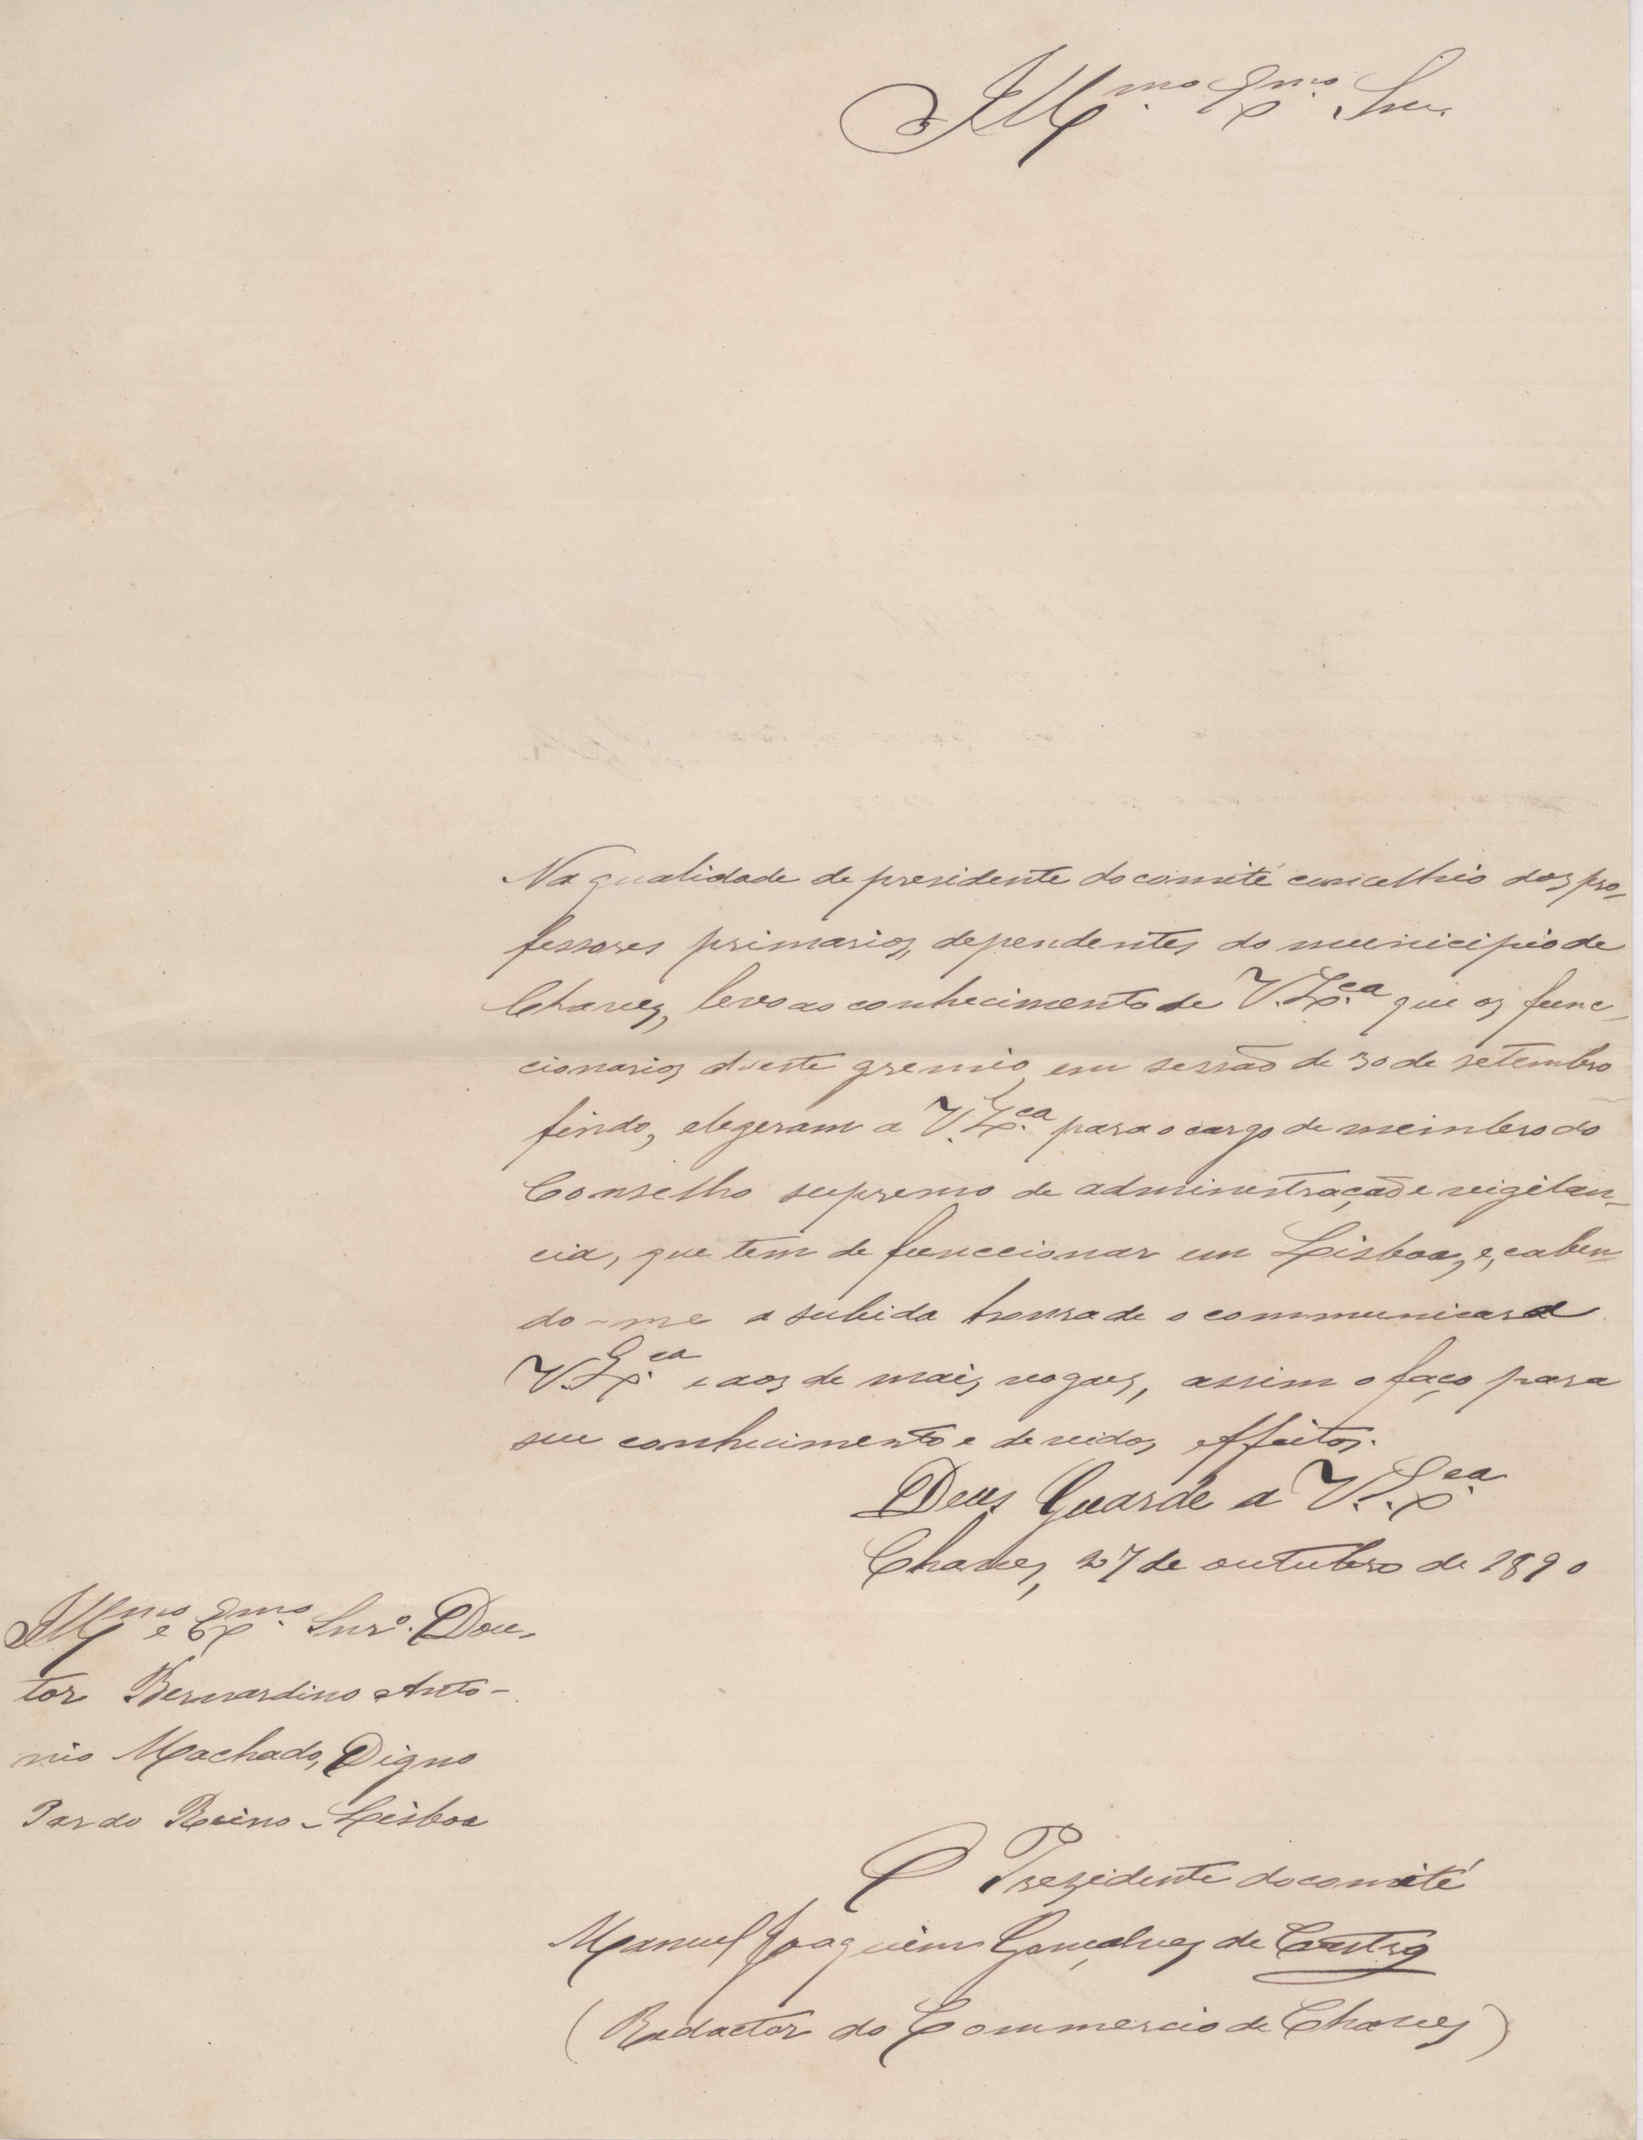 Ill.mo Ex.mo Snr.
Na qualidade de presidente do comité concelhio dos pro-
fessores primarios, dependentes do municipio de
Chaves, levo ao conhecimento de V. Ex.cia que os func-
cionarios d'este gremio, em sessão de 30 de setembro
findo, elegeram a V. Ex.cia para o cargo de membro do
Conselho supremo de administração e vigilan-
cia, que tem de funccionar em Lisboa, e, caben-
do-me a subida honra de o communicar a
V. Ex.cia e aos de mais vogaes, assim o faço para
seu conhecimento e devidos effeitos.
Deus Guarde a V. Ex.cia
Chaves, 27 de outubro de 1890
Ill.mo e Ex.mo Snr.º Dou-
tor Bernardino Anto-
nio Machado, Digno
Par do Reino - Lisboa
O Prezidente do comité
Manuel Joaquim Gonçalves de Castro
(Redactor do Commercio de Chaves)